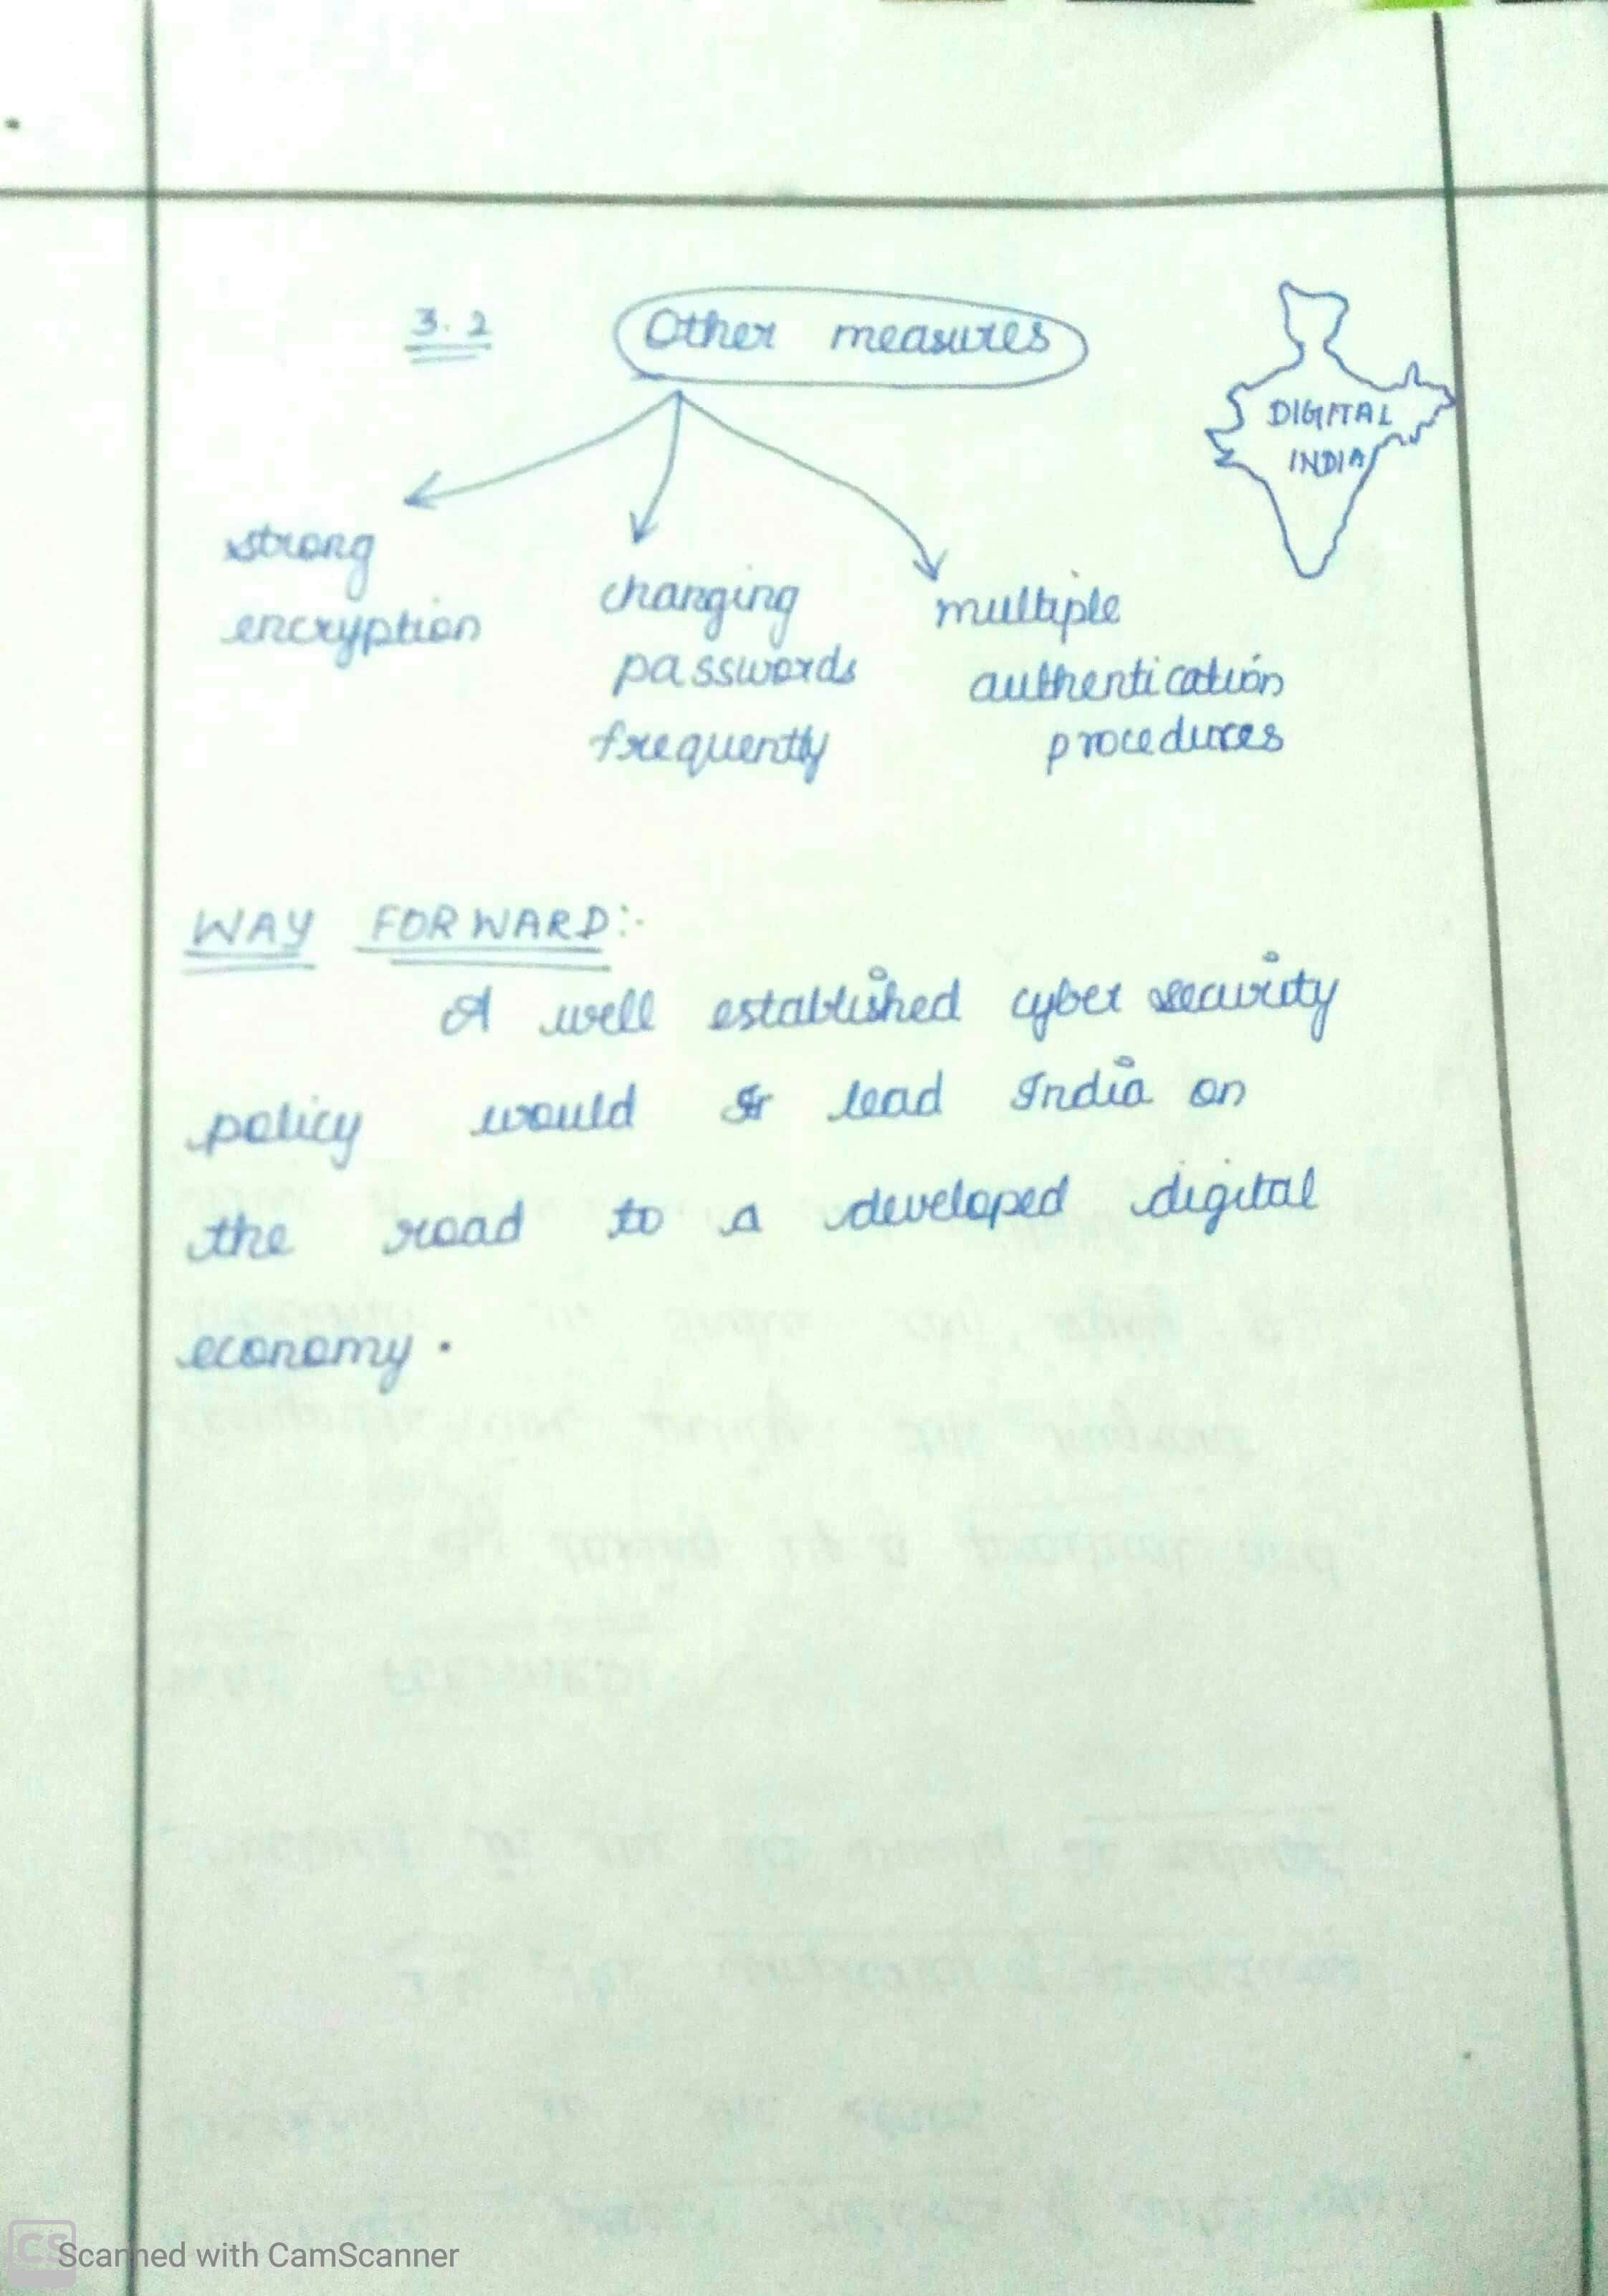 3.2 Other measures
DIGITAL
INDIA
strong
encryption
changing
passwords
frequently
multiple
authentication
procedures
WAY FORWARD:-
A well established cyber security
policy would lead India on
the road to a developed digital
economy.
CS Scanned with CamScanner